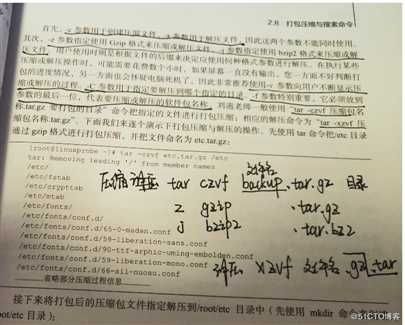 2.8 打包压缩与搜索命令
首先，-c 参数用于创建压缩文件，-x 参数用于解压文件，因此这两个参数不能同时使用。
其次，-z 参数指定使用 Gzip 格式来压缩或解压文件，-j 参数指定使用 bzip2 格式来压缩或解
压文件。用户使用时则是根据文件的后缀来决定应使用何种格式参数进行解压。在执行某些
压缩或解压操作时，可能需要花费数个小时，如果屏幕一直没有输出，您一方面不好判断打
包的进度情况，另一方面也会怀疑电脑死机了，因此非常推荐使用-v 参数向用户不断显示
压缩或解压的过程。-C 参数用于指定要解压到哪个指定的目录。-f 参数特别重要，它必须放到
参数的最后一位，代表要压缩或解压的软件包名称。刘遄老师一般使用“tar -czvf 压缩包名
称.tar.gz 要打包的目录”命令把指定的文件进行打包压缩；相应的解压命令为“tar -xzvf 压
缩包名称.tar.gz”。下面我们来逐个演示下打包压缩与解压的操作。先使用 tar 命令把/etc 目录
通过 gzip 格式进行打包压缩，并把文件命名为 etc.tar.gz：
[root@linuxprobe ~]# tar -czvf etc.tar.gz /etc
tar: Removing leading `/' from member names
/etc/
/etc/fstab
/etc/crypttab
/etc/mtab
/etc/fonts/
/etc/fonts/conf.d/
/etc/fonts/conf.d/65-0-madan.conf
/etc/fonts/conf.d/59-liberation-sans.conf
/etc/fonts/conf.d/90-ttf-arphic-uming-embolden.conf
/etc/fonts/conf.d/59-liberation-mono.conf
/etc/fonts/conf.d/66-sil-nuosu.conf
省略部分压缩过程信息
文件名
tar czvf backup.tar.gz 目录
z gzip .tar.gz
j bzip2 .tar.bz2
xzvf 文件名.gz .tar
接下来将打包后的压缩包文件指定解压到/root/etc 目录中（先使用 mkdir 命令
@51CTO博客